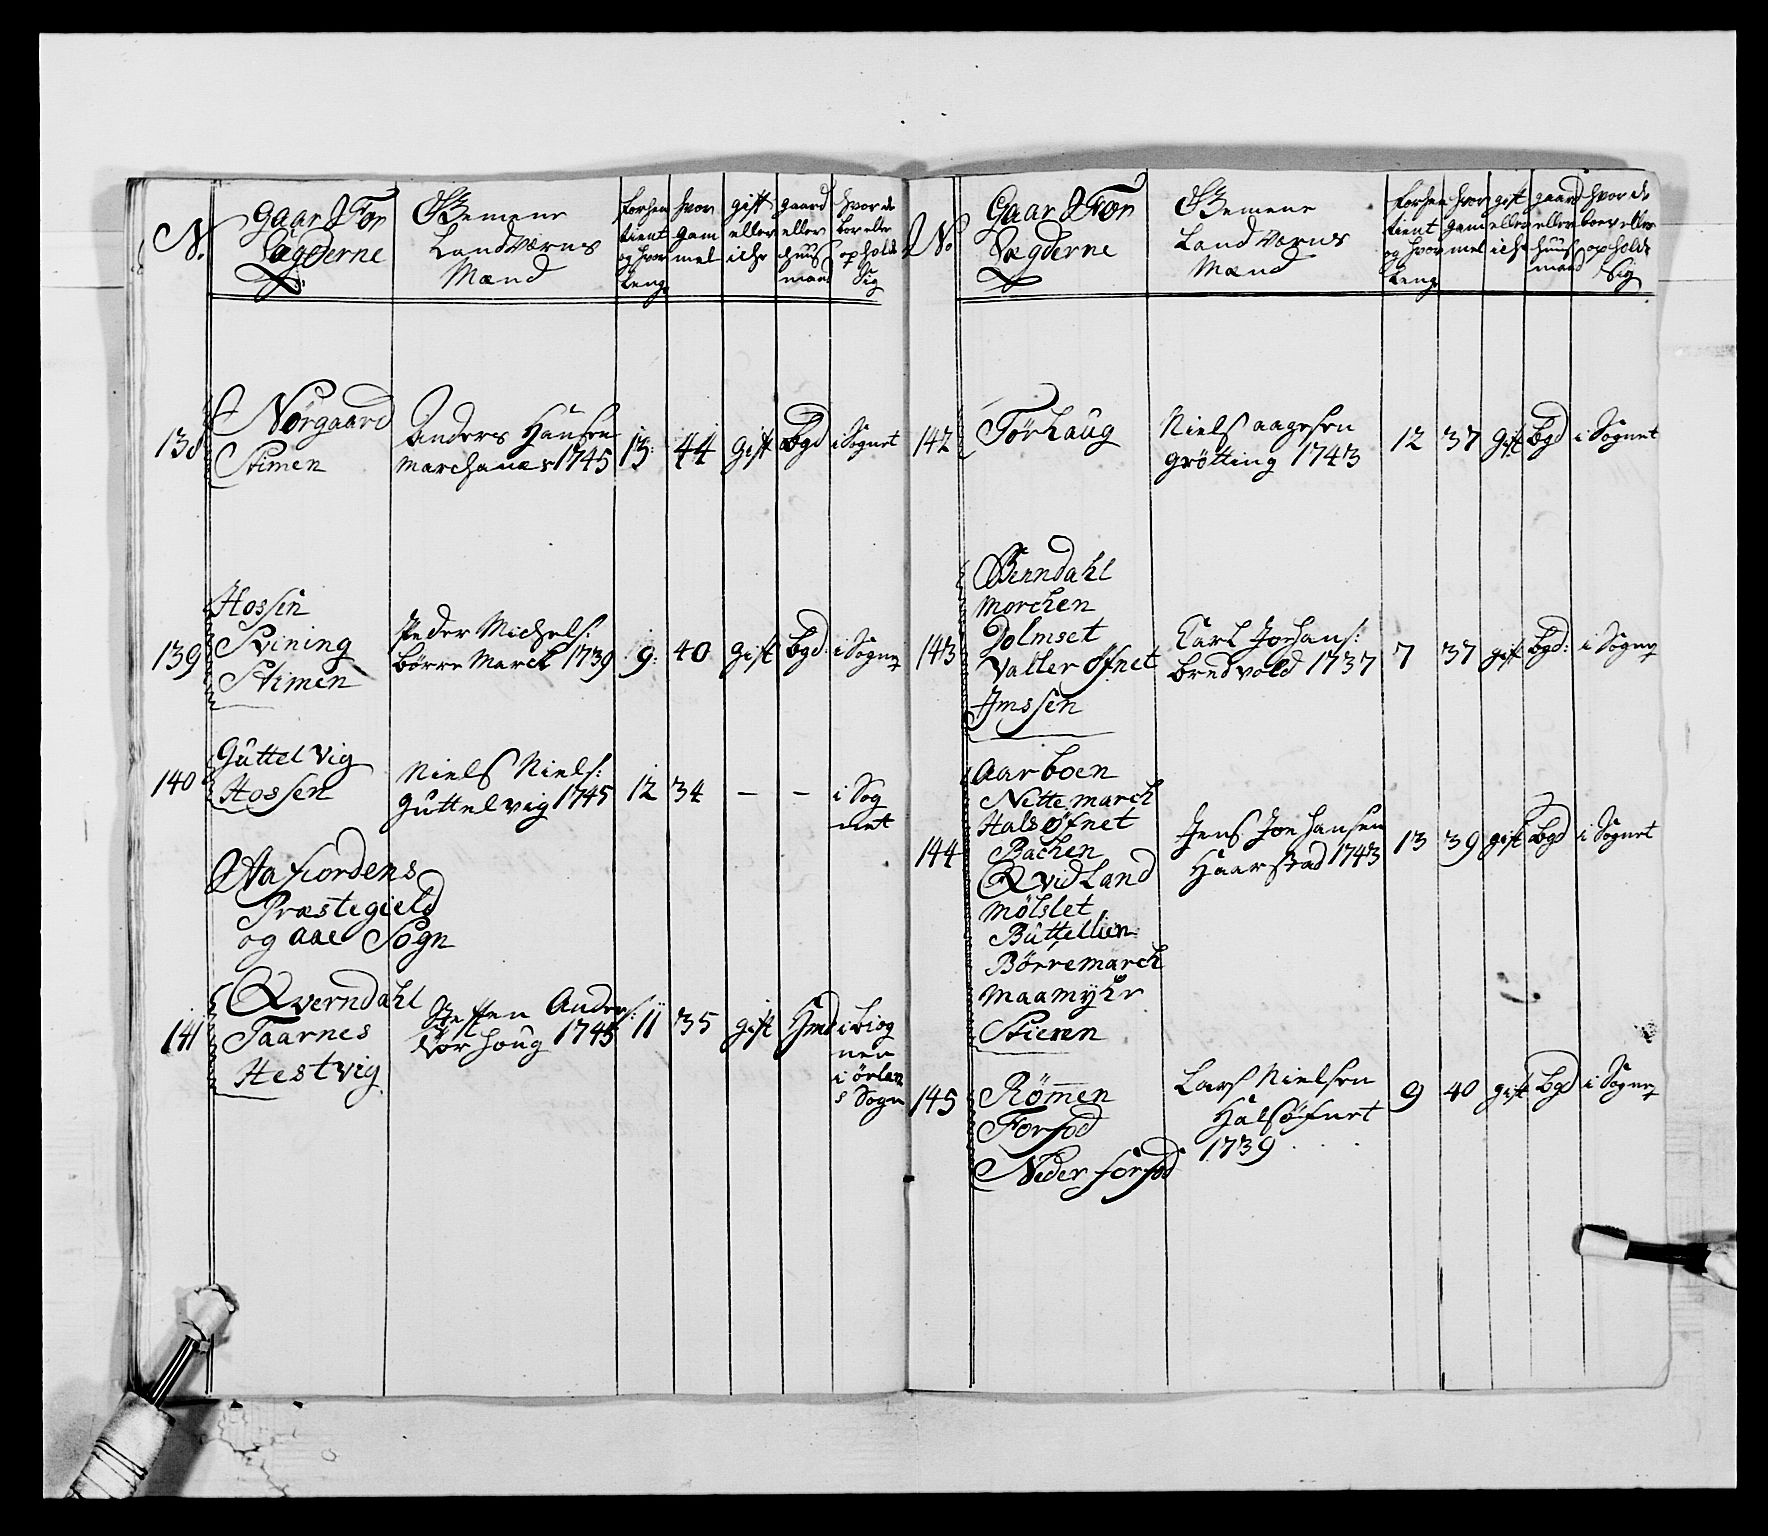 N.
Gaar D For
Lægderne
Gemene
Landværns
Mænd
forhen
tient
og hvor
leng
hvor
gam
mel
gift
eller
icke
gaard
eller
huus
mand
hvor de
bor eller
opholde
Sig
138
Nørgaard
Stimen
Anders Hansen
Marchanes 1745
13 44 gift Bgd i Sognet
139
Hossen
Svining
Stimen
Peder Michels:
børre March 1739
9: 40 gift bgd: i Sogne
140
Guttelvig
Hossen
Niels Niels:
Guttelvig 1745
12 34 – – i Sog
net
Aafiordens
Præstegield
og aae Sogn
141
Qverndahl
Taarnes
Hestvig
Steffen Anders:
houg 1745
11 35 gift Hmd i biog
nen
i ørlan
s Sogn
No
Gaar D For
Lægderne
Gemene
Land værns
Mænd
forhen
tient
og hvor
leng
hvor
gam
mel
gift
eller
ich
gaard
eller
huus
mand
hvor de
boer eller
opholde
Sig
142
Tørhaug
Niels aagesen
grøtting 1743
12 37 gift bgd i Sognet
143
Berndahl
Morchen
Dolmset
Valler Øfnet
Imssen
Carl Johans:
bredvold 1737
7 37 gift bgd: i Sogne
144
Aarboen
Nettemarch
Hals Øfnet
Bachen
Qvidland
Mølslet
Buttellien
Børremarch
Maamyhr
Stieren
Jens Johansen
Haarstad 1743
13 39 gift bgd i Sognet
145
Rømen
Forfod
Neder forfod
Lars Nielsen
Halsøfnet
1739
9 40 gift bgd i Sogne